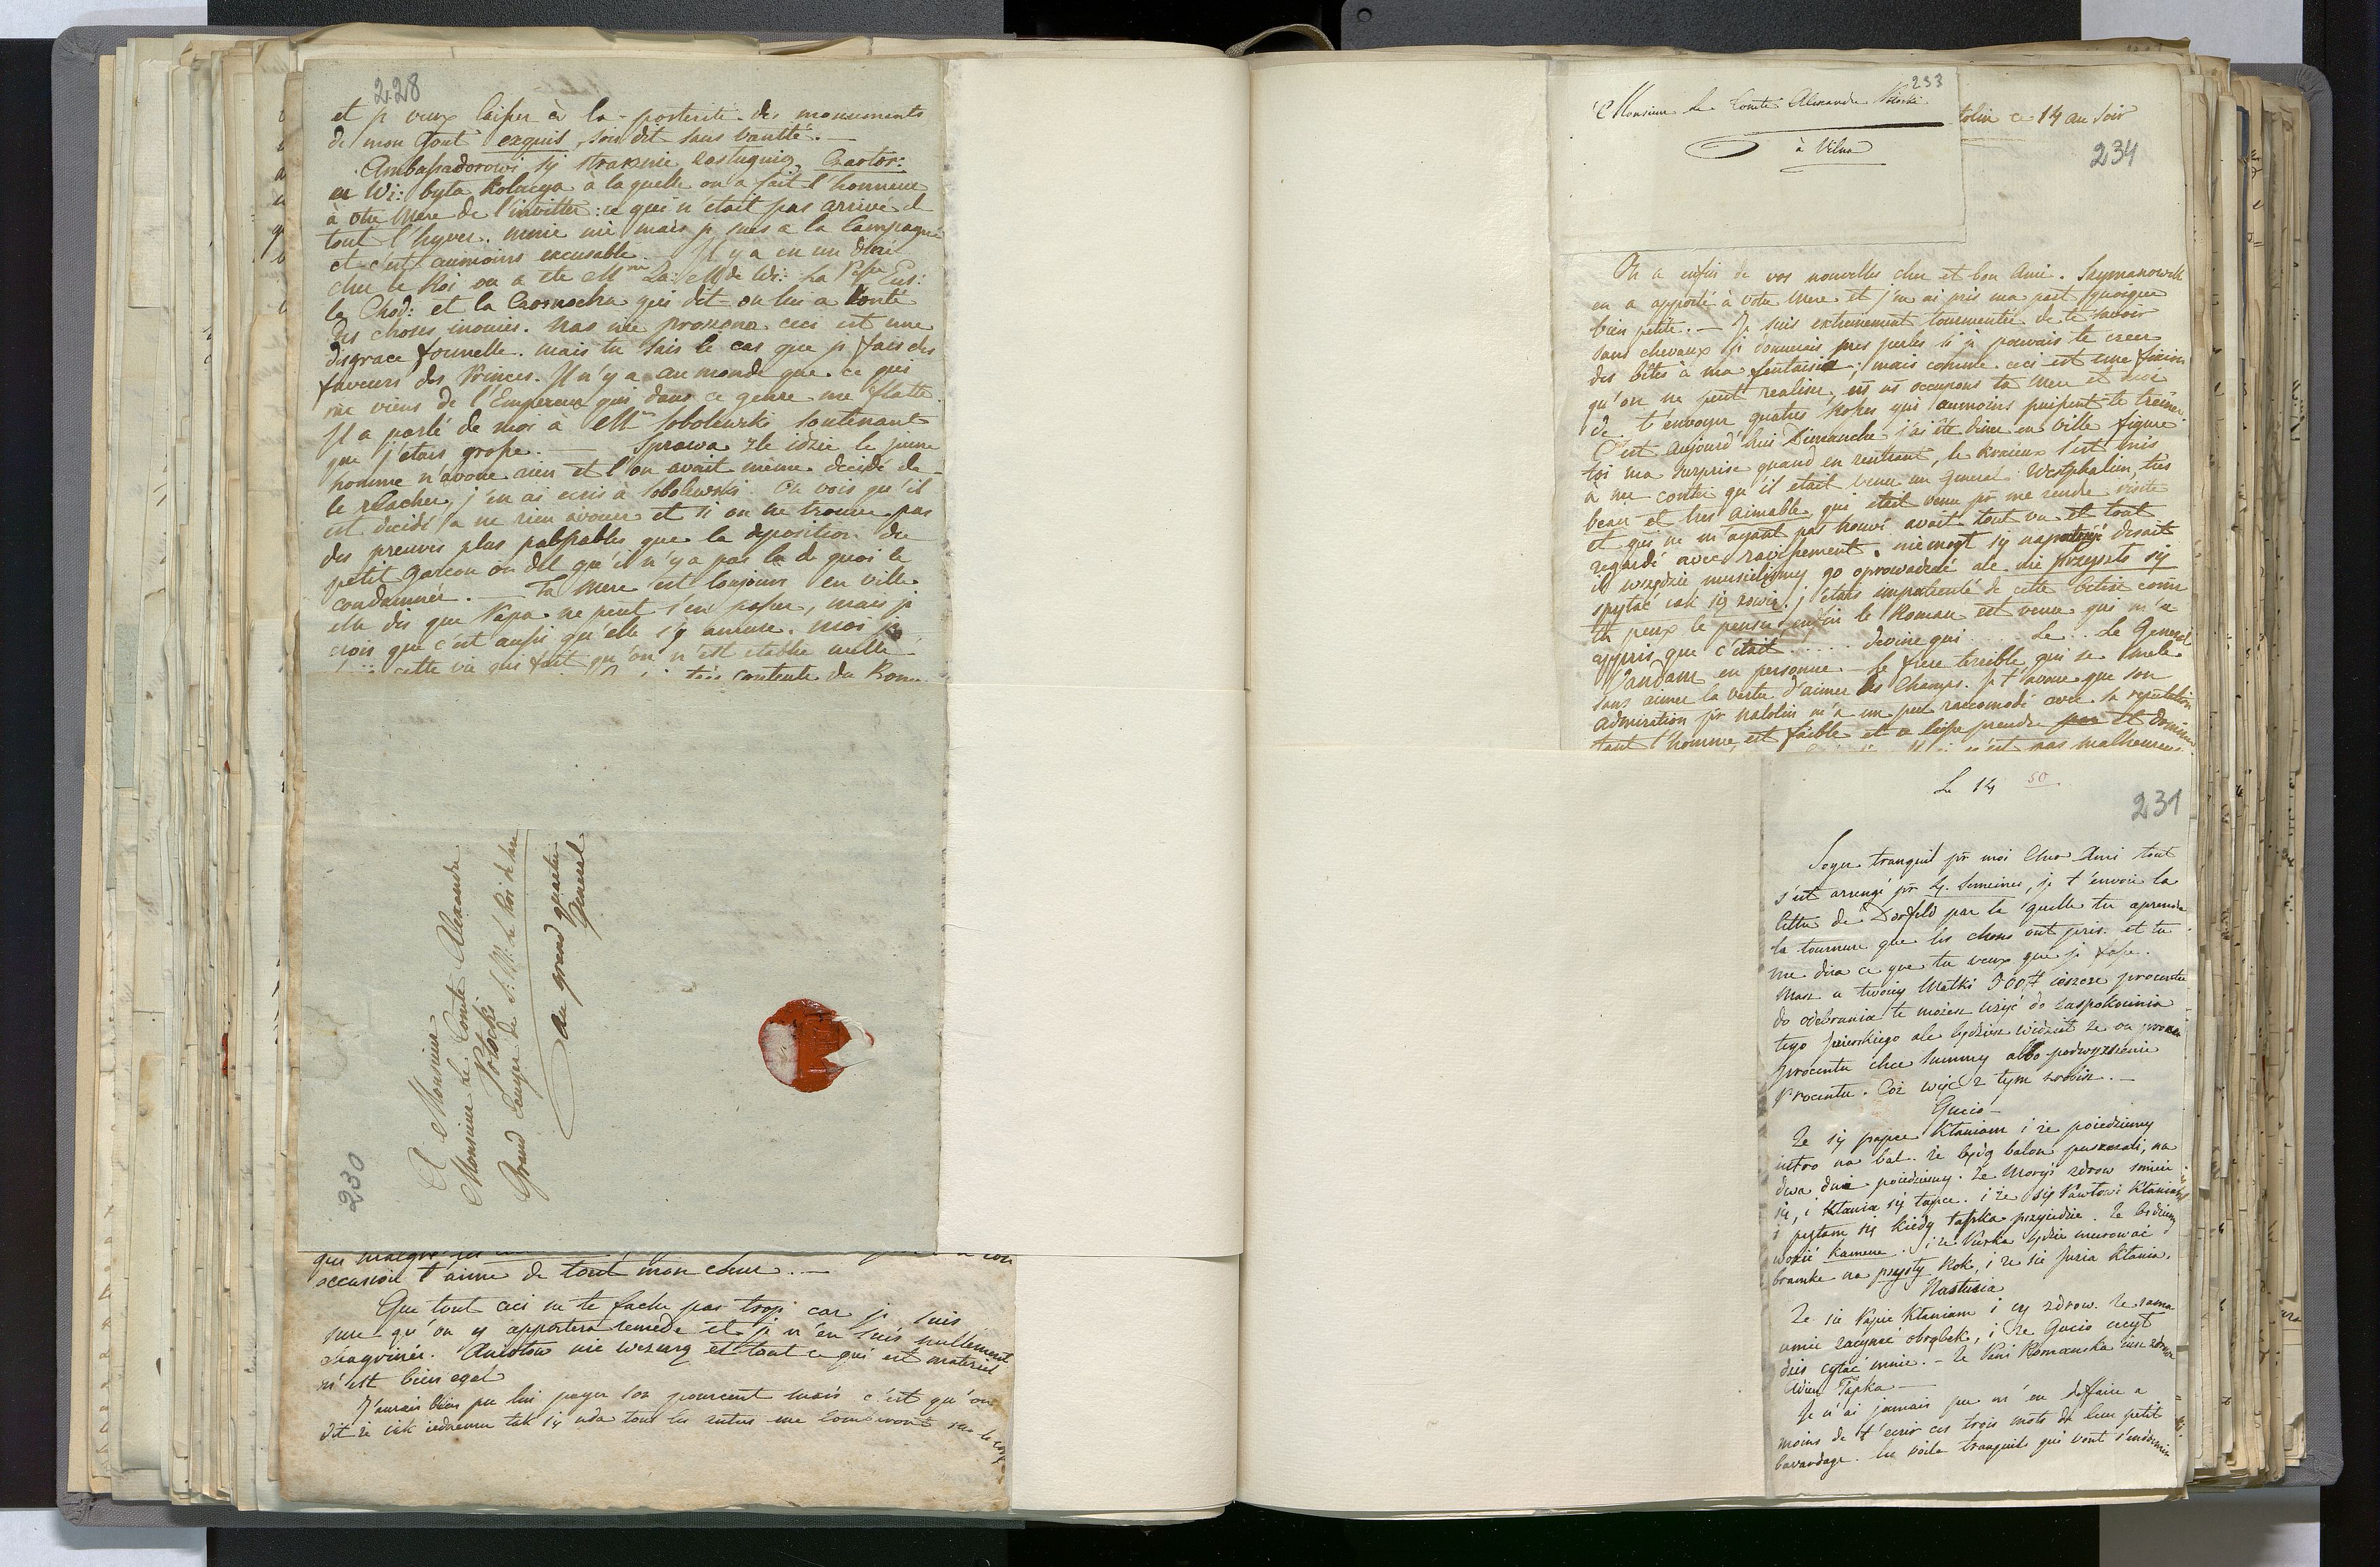 228
et je veux laisser à la postérité des monuments
de mon Gout exquis, soit dit sans vanité. —
Ambassadorowi się strasznie zasługuią. Czartor:
en Wi: była Kolacya à la quelle on a fait l'honneur
à otre Mere de l'invitter: ce qui n'était pas arrivé de
tout l'hyver. mais je suis a la Campagne
et c'est aumoins excusable. Il y a eu un diné
chez le Roi ou a été Mme La: Mde Wi: La Psse Eus:
la Chod: et la Czosnocha qui dit-on lui a conté
des choses inouies. nas nie proszono ceci est une
disgrace formelle. mais tu sais le cas que je fais des
faveurs des Princes. Il n'y a au monde que ce qui
me viens de l'Empereur qui dans ce genre me flatte.
Il a parlé de moi à Mr Sobolewski soutenant
que j'étais grosse. — Sprawa źle idzie le jeune
homme n'avoue rien et l'on avait même decidé de
le relacher, j'en ai ecris à Sobolewski. On vois qu'il
est decidé a ne rien avouer et si on ne trouve pas
des preuves plus palpables que la déposition du
petit garcon on dit qu'il n'y a pas la de quoi le
condamner. — Ta mere est toujours en ville
elle dis que Papa ne peut s'en passer, mais je
crois que c'est aussi qu'elle s'y amuse. moi je
cette vie qui fait qu'on n'est etablie nulle
très contente du Roma
A Monsieur
Monsieur Le Comte Alexandre
Potocki
Grand Ecuyer de S: M: le Roi de Saxe
au grand quartier
General
230
que malgré
occasion t'aime de tout mon cœur. —
Que tout ceci ne te fache pas trop car je suis
sure qu'on y apportera remede et je n'en suis nullement
chagrinée. Antosiow nie wezmą et tout ce qui est materiel
m'est bien egal
J'aurais bien pu lui payer son pourcent mais c'est qu'on
dit że iak iednemu tak się uda tous les autres me tomberont sur le corps
233
Monsieur Le Comte Alexandre Potocki
à Vilna
tolin ce 14 au soir
234
On a enfin de vos nouvelles cher et bon Ami. Szymanowski
en a apporté à votre Mere et j'en ai pris ma part quoique
bien petite. — Je suis extremement tourmentée de te savoir
sans chevaux je donnerais mes perles si je pouvais te creer
des bêtes à ma fantaisie; mais comme ceci est une fiction
qu'on ne peut realiser, ns ns occupons ta Mere et moi
de t'envoyer quatres Rosses qui aumoins puissent te trainer.
C'est aujourd'hui Dimanche j'ai été diner en ville figure
toi ma surprise quand en rentrant, le s'est mis
à me conter qu'il etait venu un General Westphalien, très
beau et tres aimable qui etait venu pr me rendre visite
et qui ne m'ayant pas trouvé avait tout vu et tout
regardé avec ravissement. nie mógł się napatrzyć disait
il wszędzie musieliśmy go oprowadzać ale nie przyszło się
spytać iak się zowie. j'étais impatienté de cette betise come
tu peux le penser, enfin le Roman est venu qui m'a
appris que c'était ..... devine qui ..... Le .. Le General
Vandam en personne — Le frere terrible, qui se mele
sans aimer la vertu d'aimer les Champs. Je t'avoue que son
admiration pr Natolin m'a un peu raccomodé avec sa reputation
tant l'homme est faible et se laisse prendre par et domine
n'est pas malheureux
Le 14
50
231
Soyez tranquil pr moi Cher Ami tout
s'est arrengé pr 4. Semeines, je t'envoie la
lettre de Dorfeld par la quelle tu aprendra
la tournure que les choses ont pris. et tu
me dira ce que tu veux que je fasse.
Masz u twoiey Matki 500# ieszcze procentu
do odebrania te możesz użyć do zaspokoienia
tego ale będziesz widział że on procz
procentu chce Summy albo podwyższenia
Procentu. Coż więc z tym zrobisz. —
Gucio —
Że się papce Kłaniam i że poiedziemy
iutro na bal. że będą balon puszczali, na
dwa dni poiedziemy. Że Moryś zdrow smieie
się, i Kłania się tapce. i że się Pawłowi Kłaniam
i pytam się kiedy tapka przyiedzie. Że będziemy
wozić kamene. i że Kurka będzie murować
bramke na przyszły Rok, i że sie Juzia Kłania.
Nastusia
Że sie Papie Kłaniam i czy zdrow. że sama
umie zaczynać obrąbek, i że Gucio uczył
dzis cytać mnie. — Że Pani Romanska iusz zdrowa
Adieu Tapka —
Je n'ai jamais pu m'en deffaire a
moins de t'ecrir ces trois mots de leur petit
bavardage. les voila tranquils qui vont s'endormir